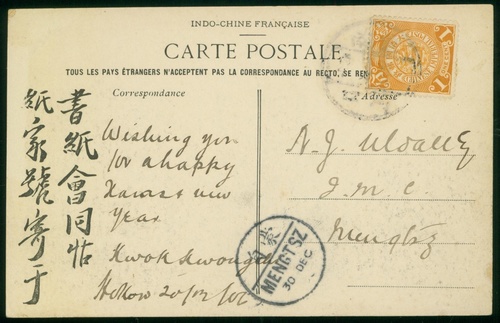 INDO-CHINE FRANÇAISE
CARTE POSTALE
TOUS LES PAYS ÉTRANGERS N'ACCEPTENT PAS LA CORRESPONDANCE AU RECTO, SE
Correspondance
Adresse
Wishing you
for a happy
Xmas & new
Year
Hokow 20/12/
書紙會同
紙家號寄于
N. J.
I. M. C.
Mengtsz
蒙
MENGTSZ
30 DEC
1
1